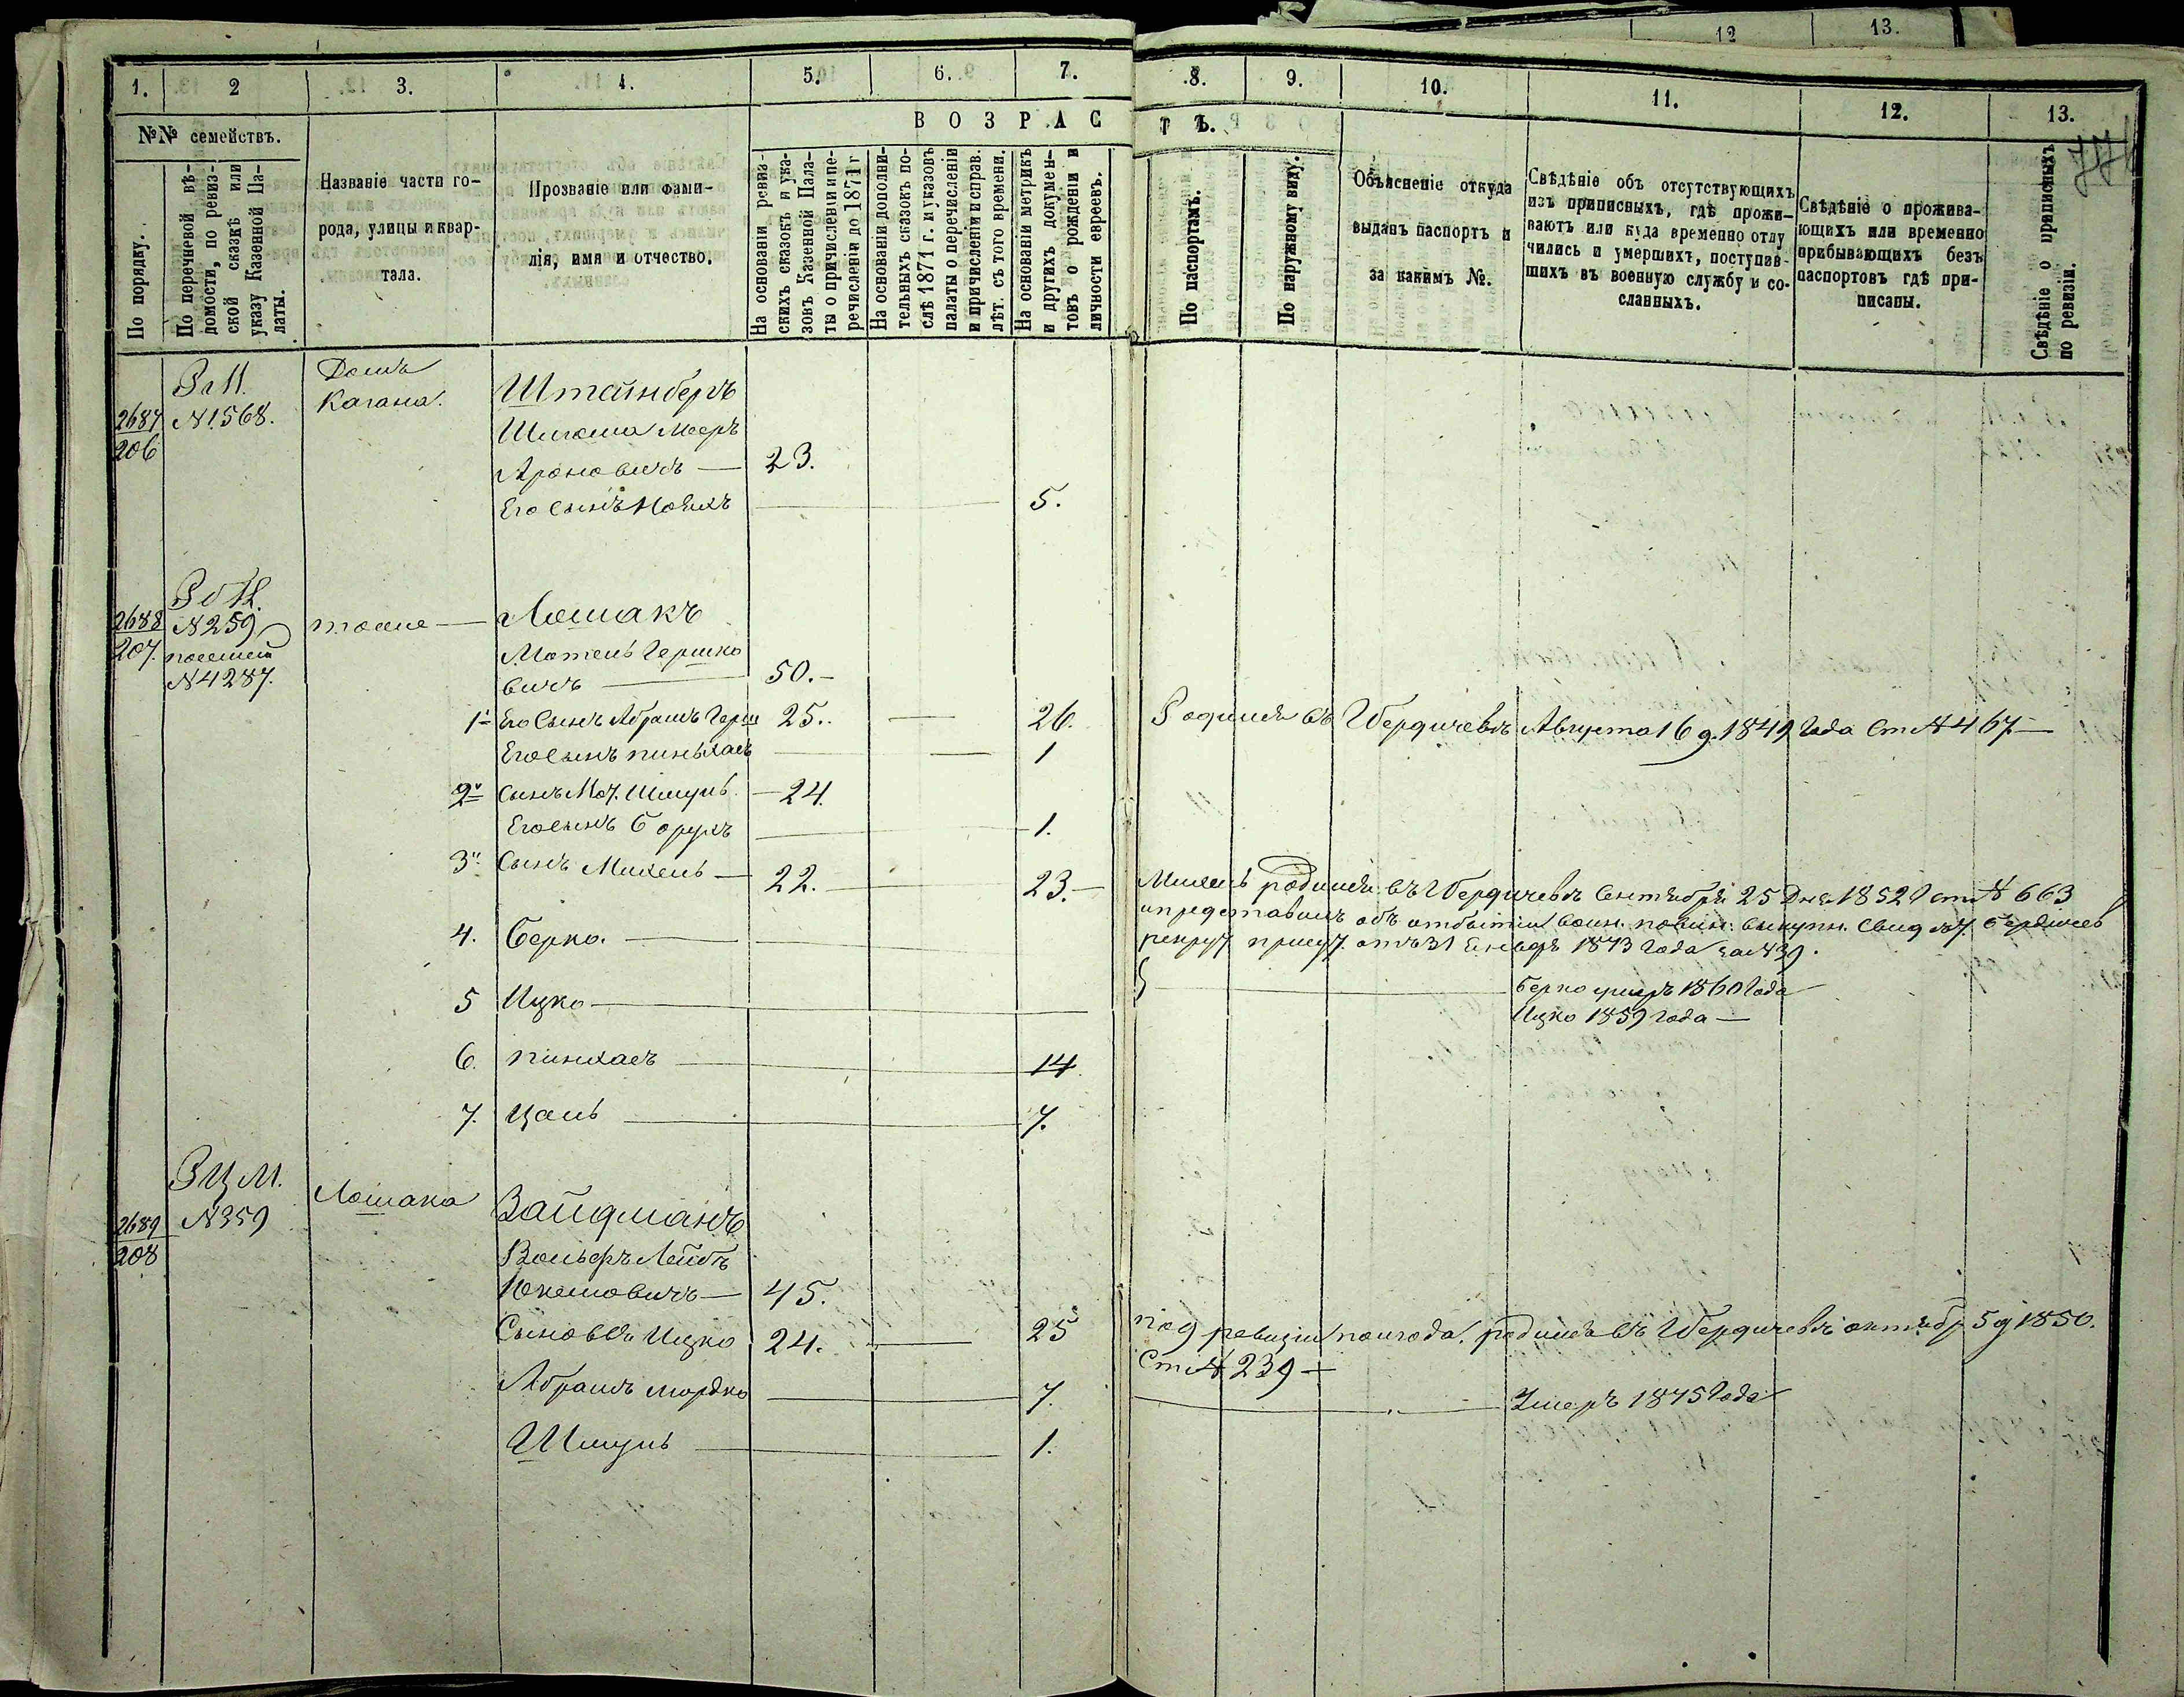 12 13.
1. 2 3. 4. 5. 6. 7. 8. 9. 10. 11. 12. 13.
№№ семействъ.
По порядку.
По перечневой вѣ-
домости, по ревиз-
ской сказкѣ или
указу Казенной Па-
латы.
Названіе части го-
рода, улицы и квар-
тала.
Прозваніе или фами-
лія, имя и отчество.
ВОЗРАСТЪ.
На основаніи ревиз-
скихъ сказокъ и ука-
зовъ Казенной Пала-
ты о причисленіи и пе-
речисленіи до 1871 г
На основаніи дополни-
тельныхъ сказокъ по-
слѣ 1871 г. и указовъ
палаты о перечисленіи
и причисленіи и справ.
лѣт. съ того времени.
На основаніи метрикъ
и другихъ докумен-
товъ о рожденіи и
личности евреевъ.
По паспортамъ.
По наружному виду.
Объясненіе откуда
выданъ паспортъ и
за какимъ №.
Свѣдѣніе объ отсутствующихъ
изъ приписныхъ, гдѣ прожи-
ваютъ или куда временно отлу
чились и умершихъ, поступив-
шихъ въ военную службу и со-
сланныхъ.
Свѣдѣніе о прожива-
ющихъ или временно
прибывающихъ безъ
паспортовъ гдѣ при-
писаны.
Свѣдѣніе о приписныхъ
по ревизіи.
2687
206
№ 1568.
Домъ
Кагана.
Штейнберъ
Мееръ
Ароновичъ — 23.
Его сынъ 5.
2688
207.
№ 259
№ 4287.
тоже —
Лошакъ
Мотель Гершко
вичъ — 50.-
1й Его Сынъ Абрамъ Герш 25. — 26. Родился въ Г Бердичевѣ Августа 16 д. 1849 Года Ст № 467.—
Его сынъ пинхасъ — 1
2й Сынъ Мот. Шмуль — 24.
Его сынъ Борухъ — 1.
3й Сынъ Михель — 22. — 23. — Михель родился въ Г Бердичевѣ Сентября 25 Дня 1852 Г ст № 663
и представилъ объ отбытіи воин. повин. выкупн. Свид Бердичев
рекрут присут отъ 31 Января 1873 Года за № 39.
4. Берко. — Берко умеръ 1860 Года
5 Ицко — Ицко 1859 года —
6. пинхасъ — 14.
7. Цаль — 7.
2689
208
№ 359
Лошака
Зайдманъ
Вольфъ Лейбъ
— 45.
Сыновья Ицко 24. — 25 родился въ Г Бердичевѣ октябр 5 д 1850.
Ст № 239 —
Абрамъ Мордко — 7. — Умеръ 1875 Года
Шмуль — 1.